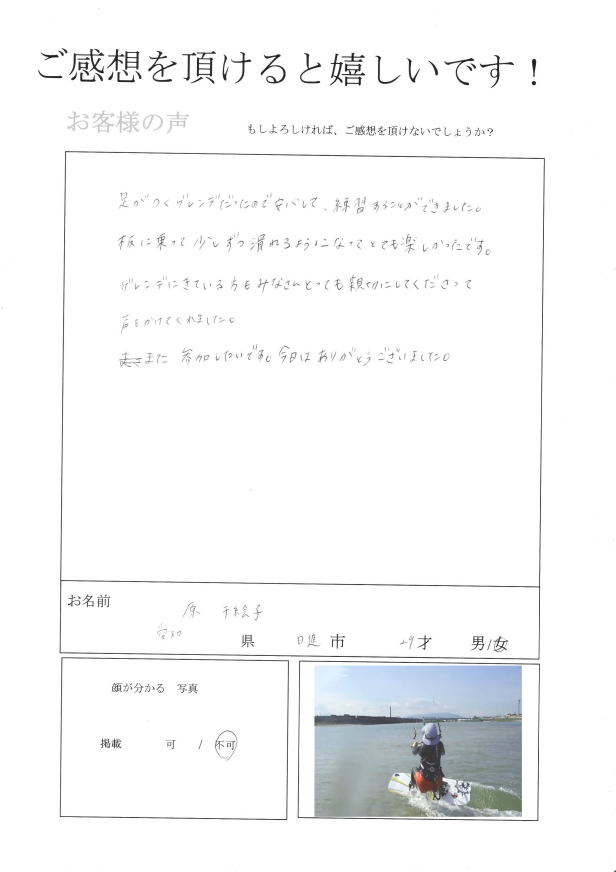 ご感想を頂けると嬉しいです!
お客様の声
もしよろしければ、ご感想を頂けないでしょうか?
足がつくゲレンデだったので安心して、練習することができました。
板に乗って少しずつ滑れるようになってとても楽しかったです。
ゲレンデにきている方もみなさんとっても親切にしてくださって
声をかけてくれました。
また 参加したいです。今日はありがとうございました。
お名前
原 千絵子
愛知 県 日進 市 29才 男/女
顔が分かる 写真
掲載 可 / 不可